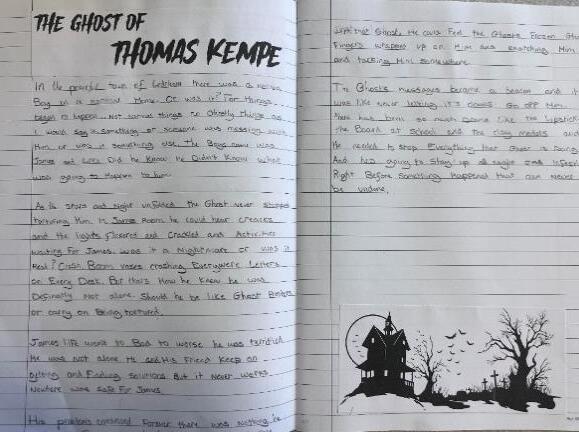 THE GHOST OF
THOMAS KEMPE
In the peaceful town of Ledsham there was a normal
Boy in a normal Home. Or was it? For things
began to happen. Not normal things no Ghostly things as
I would say is something or someone was messing with
Him or was it something else. The Boys name was
James and Did he know He Didn't know what
was going to Happen to him.
As the stars and night unfolded the Ghost never stopped
torturing Him. In James Room he could hear creaces
and the lights flickered and crackled and Activities
waiting For James. Was it a Nightmare or was it
Real? Crash. Boom vases crashing Everywere Letters
on Every Desk. But thats How he knew he was
Definatly Not alone. Should he be like Ghost Busters
or carry on Being tortured.
James life went to Bad to worse he was terrified
He was not alone He and His Friend Keep on
and Finding solutions But it Never works
Nowhere was safe For James.
His problems continued Forever there was nothing he
Ghost. He could Feel the Ghosts Frozen
Fingers up on Him and snatching Him
and taking Him somewhere.
The Ghosts messages became a beacon and it
was like never
There has been so much Done like the lipstick
the Board at School and the models and
He needed to stop Everything that Ghost is Doing
And hes going to Stay up all night and
Right Before Something Happened that can Never
be undone.